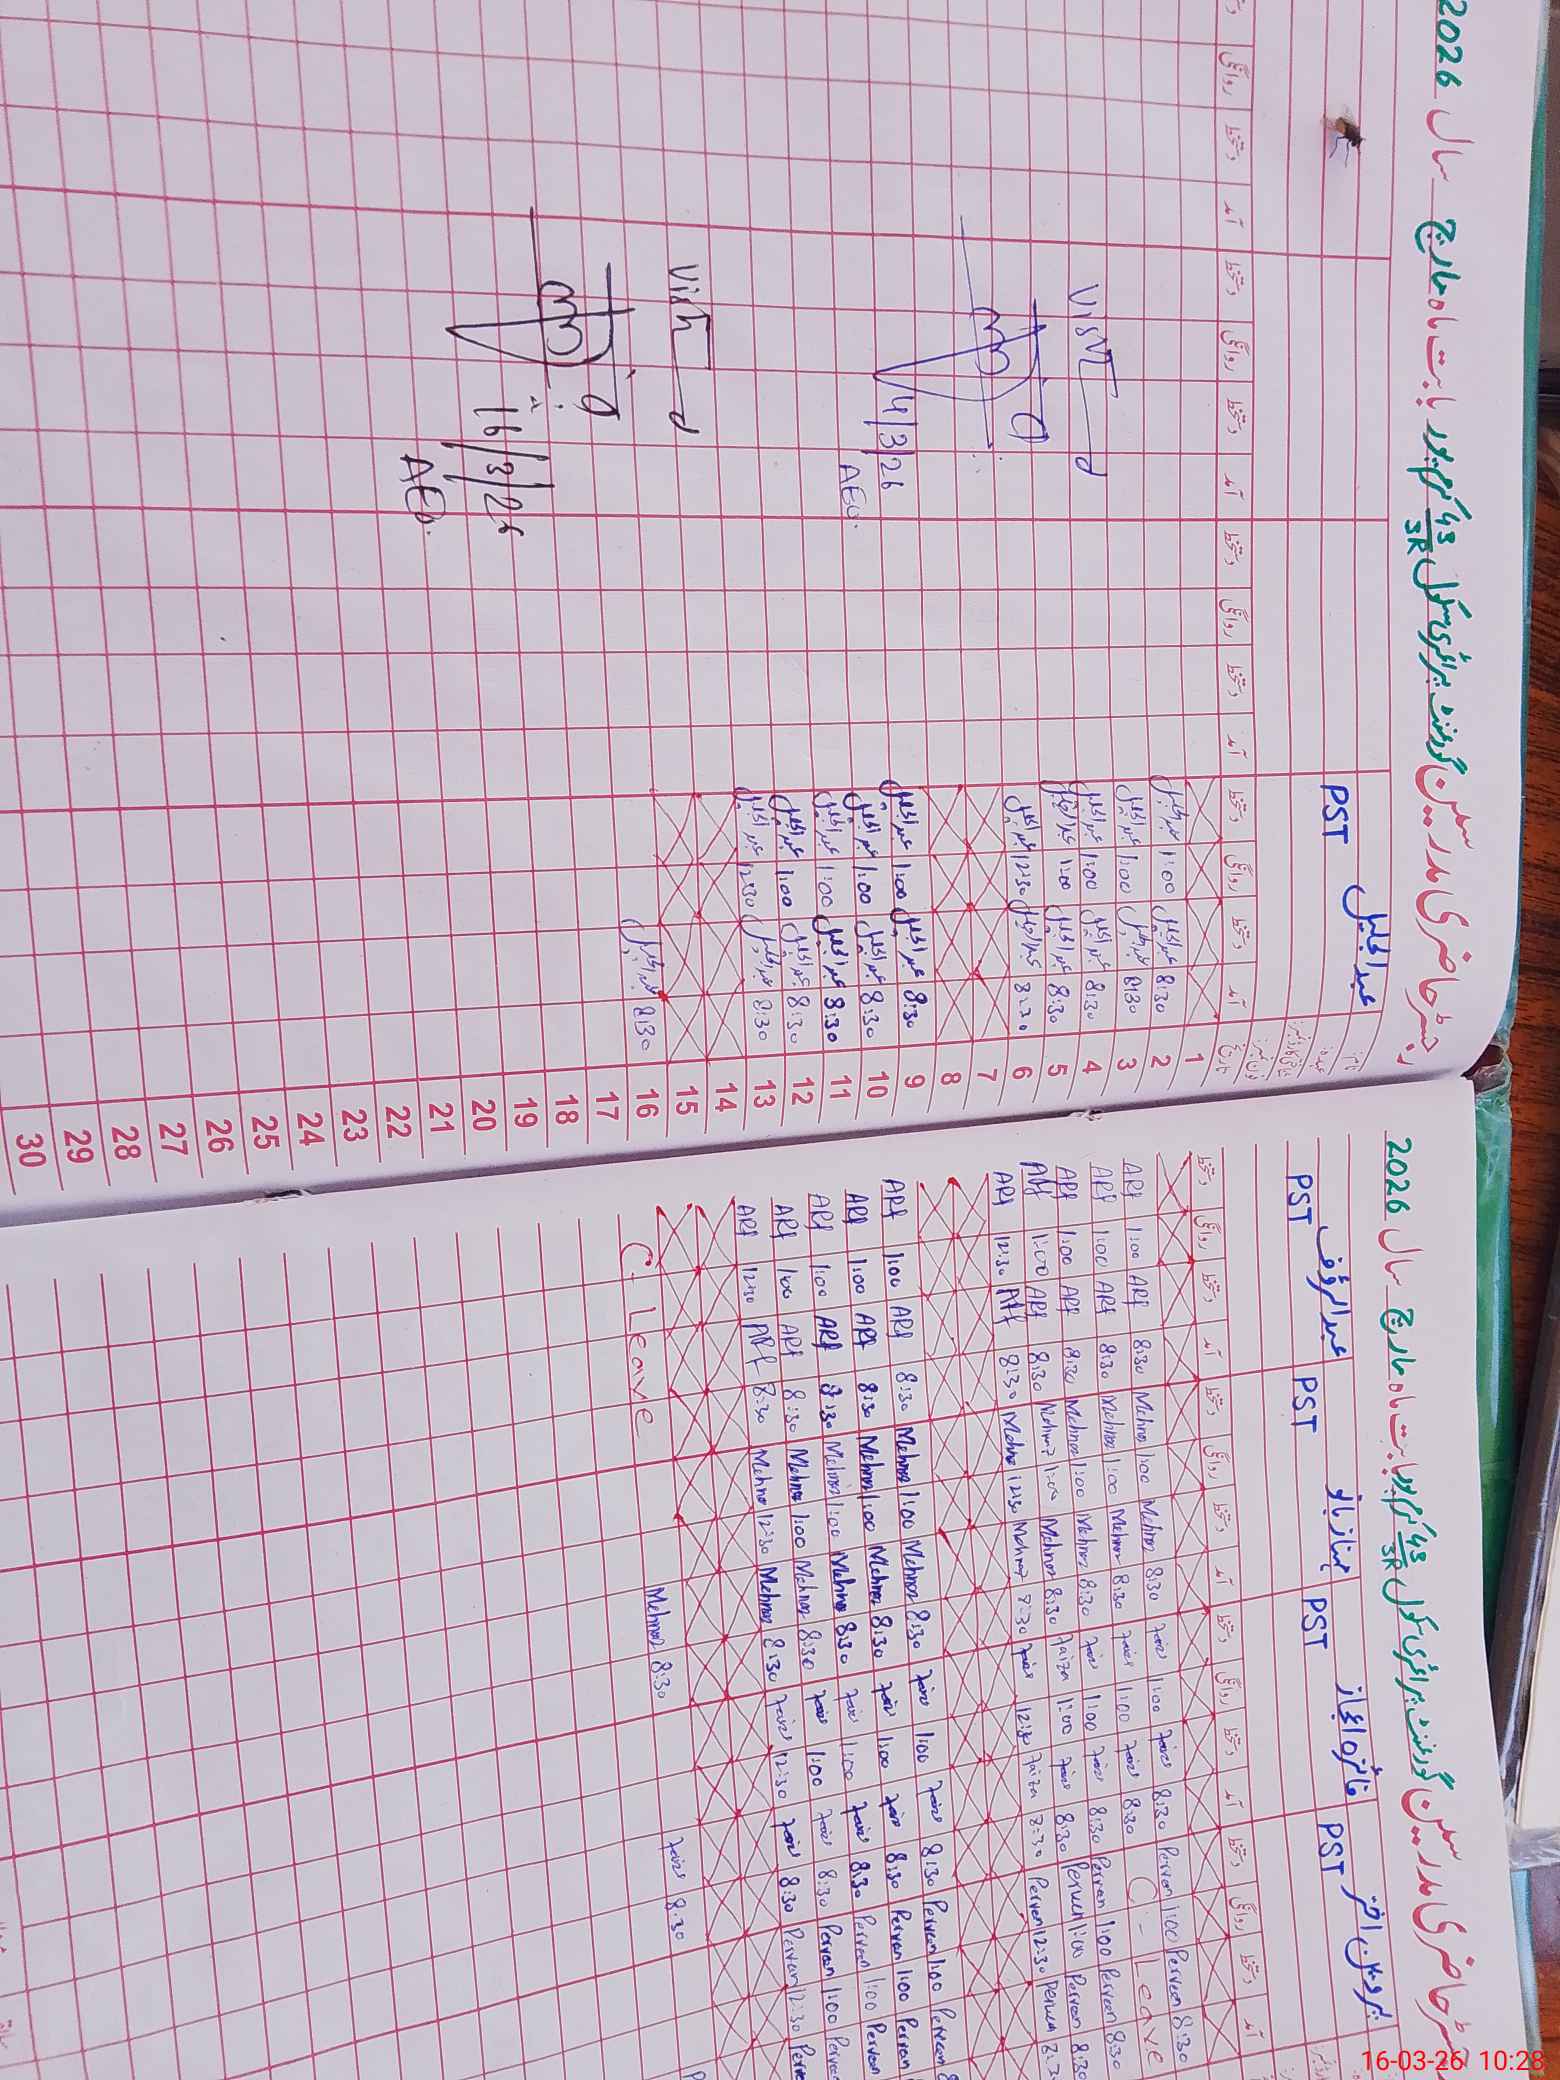 رجسٹر حاضری مدرسین گورنمنٹ پرائمری سکول 43/3R کرم پور بابت ماہ مارچ سال 2026
نام
عبدالجلیل
عہدہ
PST
تاریخ آمد دستخط روانگی دستخط آمد دستخط روانگی دستخط آمد دستخط روانگی
1
2 8:30 عبدالجلیل 1:00 عبدالجلیل
3 8:30 عبدالجلیل 1:00 عبدالجلیل
4 8:30 عبدالجلیل 1:00 عبدالجلیل
5 8:30 عبدالجلیل 1:00 عبدالجلیل
6 8:30 عبدالجلیل 12:30 عبدالجلیل
7
8
9 8:30 عبدالجلیل 1:00 عبدالجلیل
10 8:30 عبدالجلیل 1:00 عبدالجلیل
11 8:30 عبدالجلیل 1:00 عبدالجلیل
12 8:30 عبدالجلیل 1:00 عبدالجلیل
13 8:30 عبدالجلیل 12:30 عبدالجلیل
14
15
16 8:30 عبدالجلیل
17
18
19
20
21
22
23
24
25
26
27
28
29
30
Visited
4/3/26
AEO.
Visited
16/3/26
AEO.
رجسٹر حاضری مدرسین گورنمنٹ پرائمری سکول 43/3R کرم پور بابت ماہ مارچ سال 2026
پروین اختر فائزہ اعجاز مہناز بانو عبدالرؤف
PST PST PST PST
آمد دستخط روانگی دستخط آمد دستخط روانگی دستخط آمد دستخط روانگی دستخط آمد دستخط روانگی دستخط
ARf 1:00 ARf 8:30 Mehnaz 1:00 Mehnaz 8:30 Faiza 1:00 Faiza 8:30 Perveen 1:00 Perveen 8:30
ARf 1:00 ARf 8:30 Mehnaz 1:00 Mehnaz 8:30 Faiza 1:00 Faiza 8:30 C - Leave
ARf 1:00 ARf 8:30 Mehnaz 1:00 Mehnaz 8:30 Faiza 1:00 Faiza 8:30 Perveen 1:00 Perveen 8:30
ARf 1:00 ARf 8:30 Mehnaz 1:00 Mehnaz 8:30 Faiza 1:00 Faiza 8:30 Perveen 1:00 Perveen 8:30
ARf 12:30 ARf 8:30 Mehnaz 12:30 Mehnaz 8:30 Faiza 12:30 Faiza 8:30 Perveen 12:30 Perveen 8:30
ARf 1:00 ARf 8:30 Mehnaz 1:00 Mehnaz 8:30 Faiza 1:00 Faiza 8:30 Perveen 1:00 Perveen
ARf 1:00 ARf 8:30 Mehnaz 1:00 Mehnaz 8:30 Faiza 1:00 Faiza 8:30 Perveen 1:00 Perveen
ARf 1:00 ARf 8:30 Mehnaz 1:00 Mehnaz 8:30 Faiza 1:00 Faiza 8:30 Perveen 1:00 Perveen
ARf 1:00 ARf 8:30 Mehnaz 1:00 Mehnaz 8:30 Faiza 1:00 Faiza 8:30 Perveen 1:00
ARf 12:30 ARf 8:30 Mehnaz 12:30 Mehnaz 8:30 Faiza 12:30 Faiza 8:30 Perveen 12:30
C. Leave Mehnaz 8:30 Faiza 8:30
16-03-26 10:28